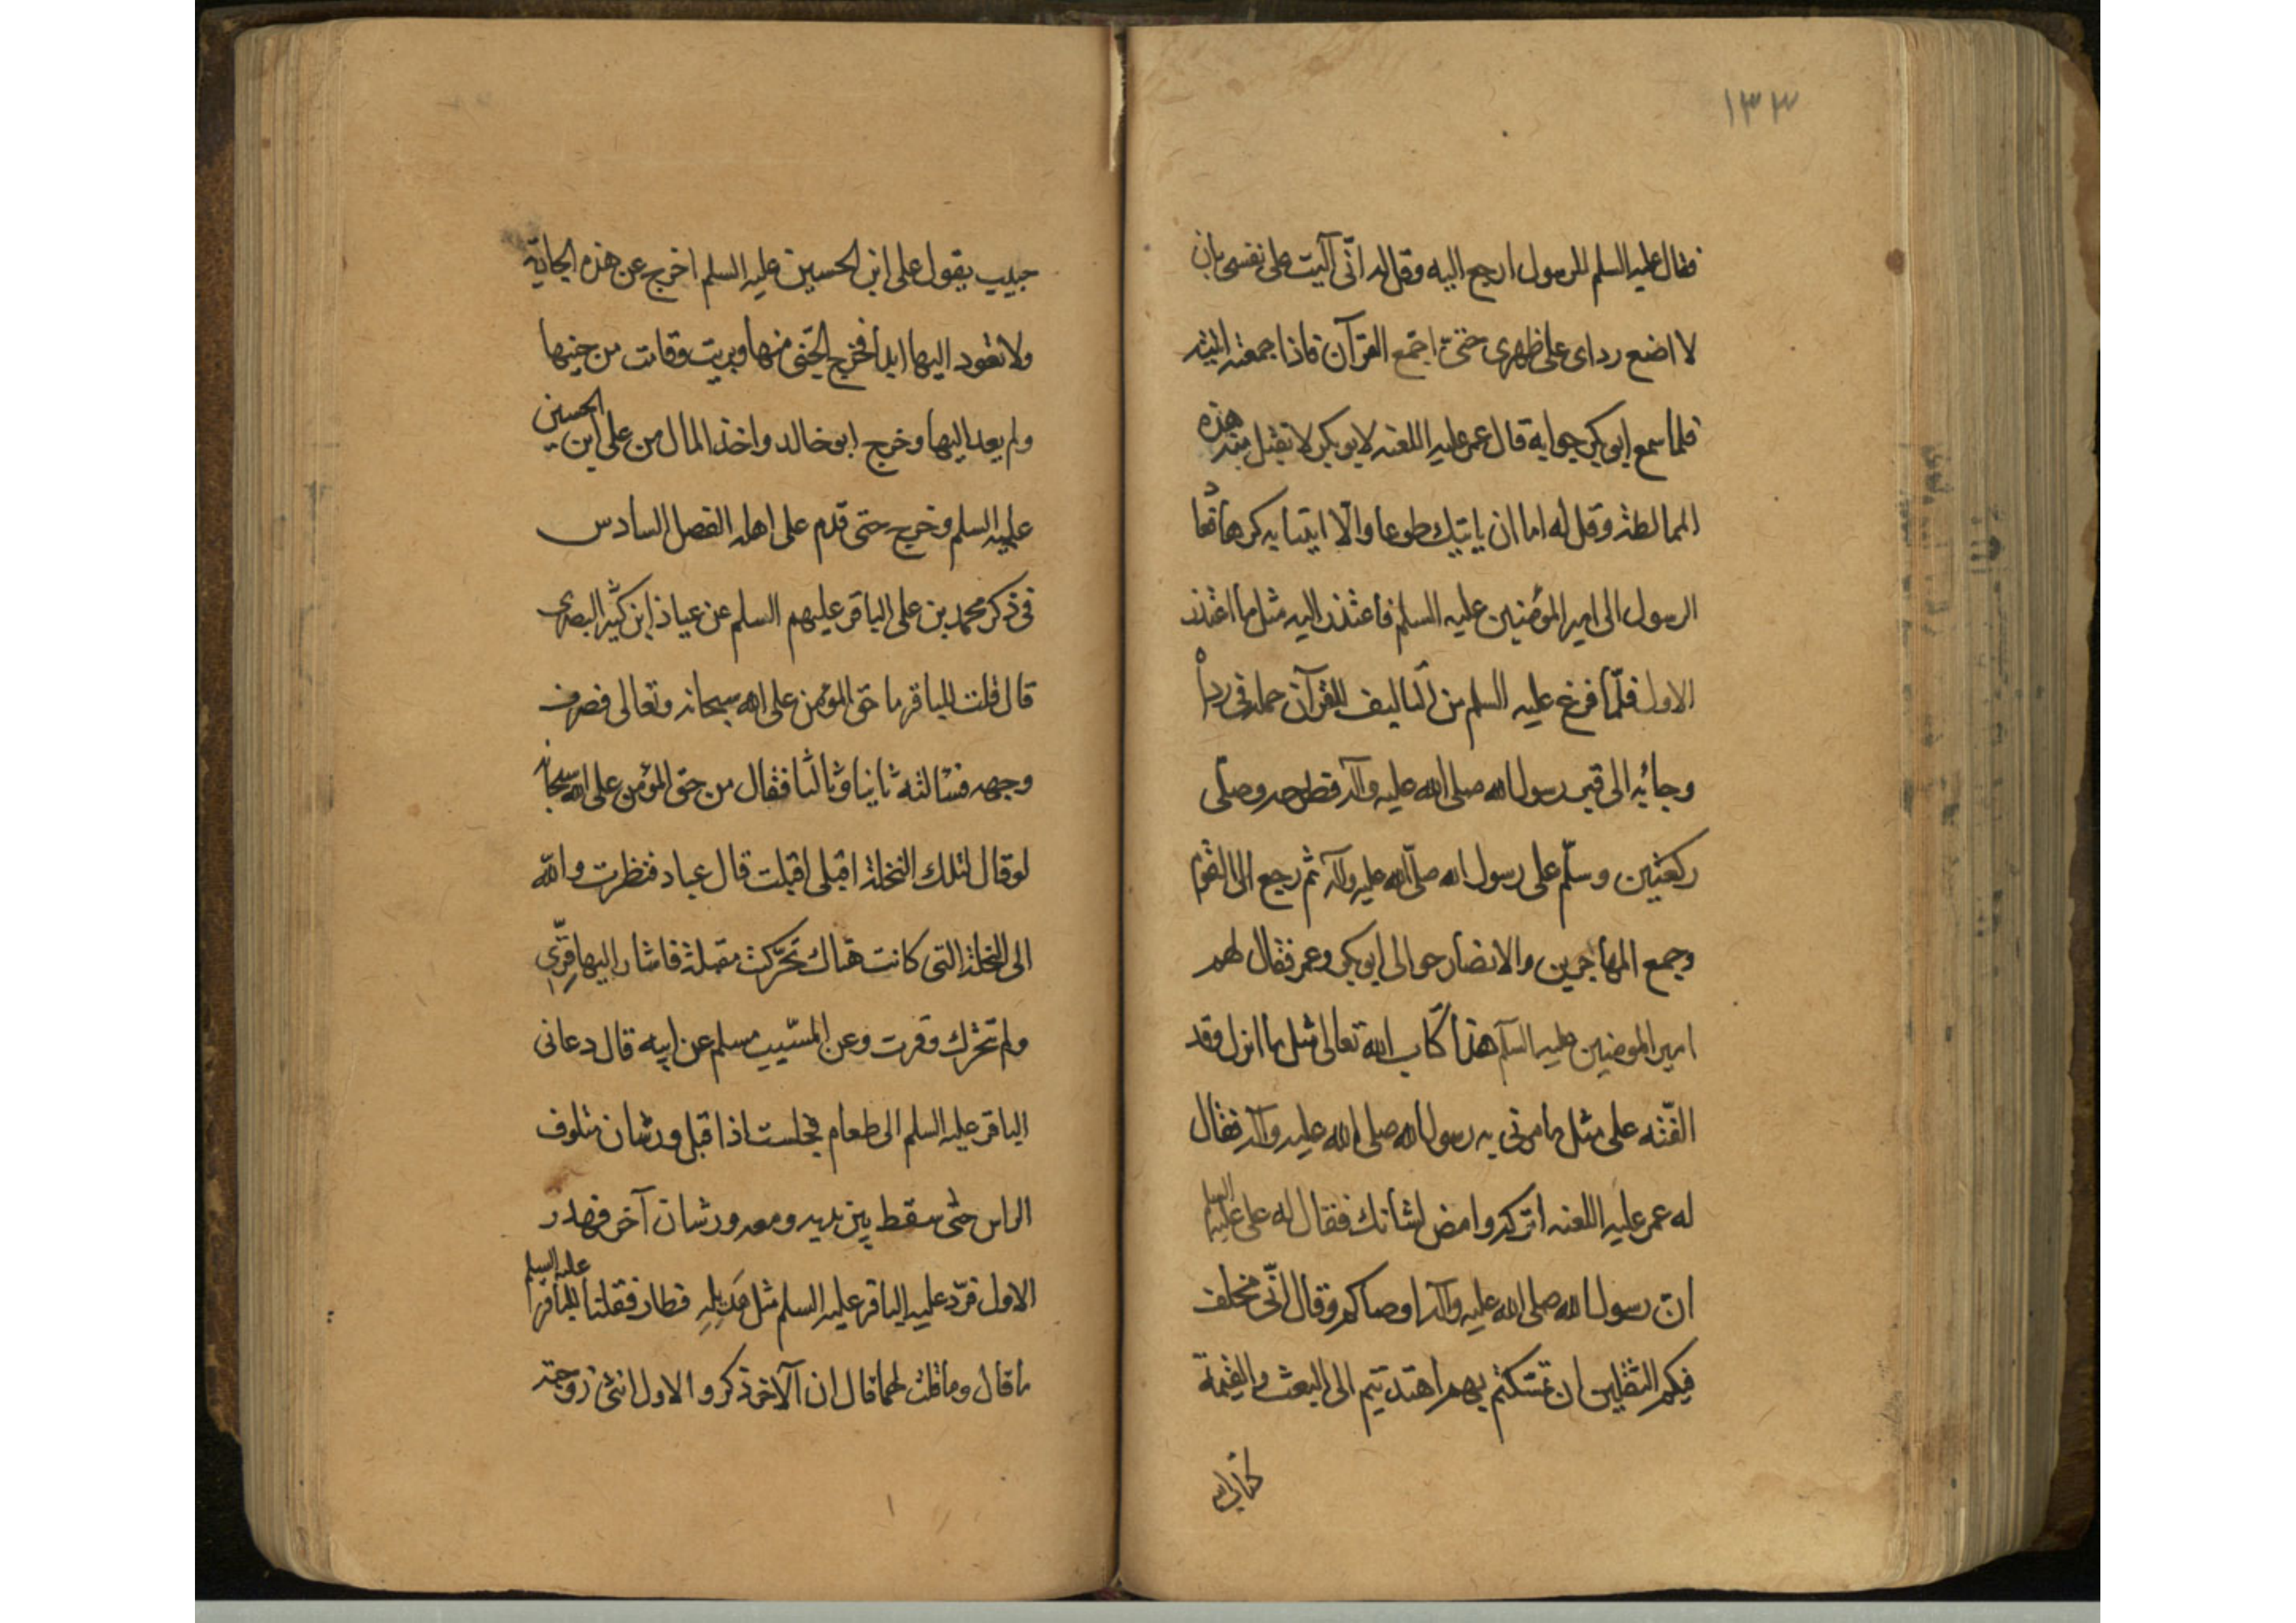 ١٣٣
فقال عليه السلم للرسول ارجع اليه وقل له انّى آليت على نفسى بان
لا اضع رداى على ظهرى حتى اجمع القرآن فاذا جمعته اتيته
فلما سمع ابو بكر جوابه قال عمر عليه اللعنه لابو بكر لا تقبل منه هذه
المماطلة وقل له اما ان ياتيك طوعا والّا ايتنا به كرها فعاد
الرسول الى امير المؤمنين عليه السلم فاعتذر اليه مثل ما اعتذر
الاول فلمّا فرغ عليه السلم من التأليف للقرآن حمله فى رداه
وجاء به الى قبر رسول الله صلى الله عليه وآله فطرحه وصلى
ركعتين وسلّم على رسول الله صلّى الله عليه وآله ثم رجع الى القوم
وجمع المهاجرين والانصار حوالى ابو بكر وعمر فقال لهم
امير المومنين عليه السلم هذا كتاب الله تعالى مثل ما انزل وقد
الّفته على مثل ما امرنى به رسول الله صلى الله عليه وآله فقال
له عمر عليه اللعنه اتركه وامض لشانك فقال له على عليه السلم
انّ رسول الله صلى الله عليه وآله اوصاكم وقال انّى مخلف
فيكم الثقلين ان تمسكتم بهم اهتديتم الى البعث والقيمة
كتاب الله
حبيب يقول على ابن الحسين عليه السلم اخرج عن هذه الجارية
ولا تعود اليها ابدا فخرج الجّنى منها وبريت وقامت من حينها
ولم يعد اليها وخرج ابو خالد واخذ المال من على ابن الحسين
عليه السلم وخرج حتى قدم على اهله الفصل السادس
فى ذكر محمد بن على الباقر عليهم السلم عن عباد ابن كثير البصرى
قال قلت للباقر ما حق المؤمن على الله سبحانه وتعالى فصرف
وجهه فسالته ثانيا وثالثا فقال من حق المؤمن على الله سبحانه
لو قال لتلك النخلة اقبلى اقبلت قال عباد فنظرت والله
الى النخلة التى كانت هناك تحرّكت مقبلة فاشار اليها قرّى
ولم تتحرك وقرت وعن المسّيب مسلم عن ابيه قال دعانى
الباقر عليه السلم الى طعام فجلست اذا قبل ورشان منتوف
الراس حتى سقط بين يديه ومعه ورشان آخر فهدر
الاول فردّ عليه الباقر عليه السلم مثل هديله فطار فقلنا للباقر عليه السلم
ما قال وما قلت لهما قال ان الآخر ذكر والاول انثى زوجته